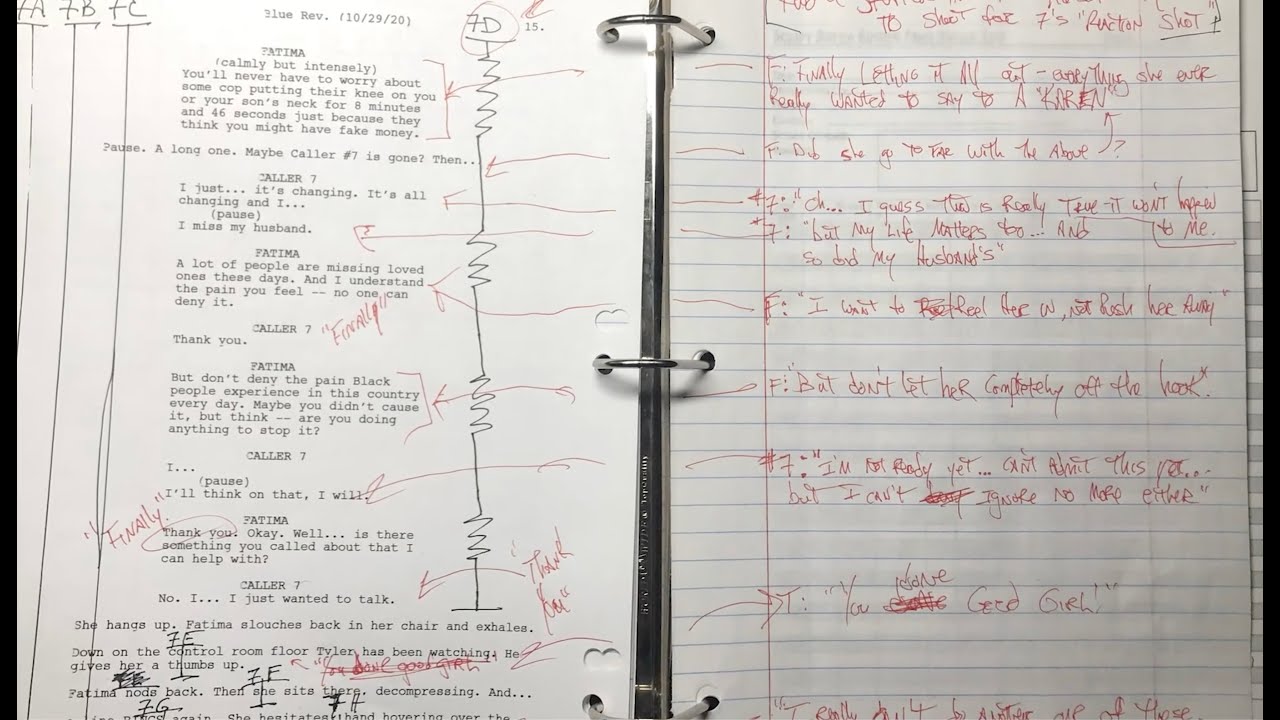 7A 7B 7C
Blue Rev. (10/29/20)
7D
15.
FATIMA
(calmly but intensely)
You'll never have to worry about
some cop putting their knee on you
or your son's neck for 8 minutes
and 46 seconds just because they
think you might have fake money.
Pause. A long one. Maybe Caller #7 is gone? Then...
CALLER 7
I just... it's changing. It's all
changing and I...
(pause)
I miss my husband.
FATIMA
A lot of people are missing loved
ones these days. And I understand
the pain you feel -- no one can
deny it.
"Finally"
CALLER 7
Thank you.
FATIMA
But don't deny the pain Black
people experience in this country
every day. Maybe you didn't cause
it, but think -- are you doing
anything to stop it?
CALLER 7
I...
(pause)
I'll think on that, I will.
"Finally."
FATIMA
Thank you. Okay. Well... is there
something you called about that I
can help with?
"Thank
You"
CALLER 7
No. I... I just wanted to talk.
She hangs up. Fatima slouches back in her chair and exhales.
7E
Down on the control room floor Tyler has been watching. He
gives her a thumbs up.
"You done good girl"
7F
Fatima nods back. Then she sits there, decompressing. And...
7G 7H
RINGS again. She hesitates, hand hovering over the
to shoot for 7's "Runion Shot"
F: Finally Letting it All out - everything she ever
Really wanted to say to A "KAREN"
F: Did she go to far with the Above?
#7: "Oh... I guess this is Really True - it won't happen
to me.
#7: "but My Life Matters too... And
so did My Husband's"
F: "I want to Reel Her in, not Push her Away"
F: "But don't let her completely off the hook."
#7: "I'm not Ready yet... can't Admit this yet...
but I can't Ignore no more either"
T: "You done Good Girl!"
"I Really don't do another one of these